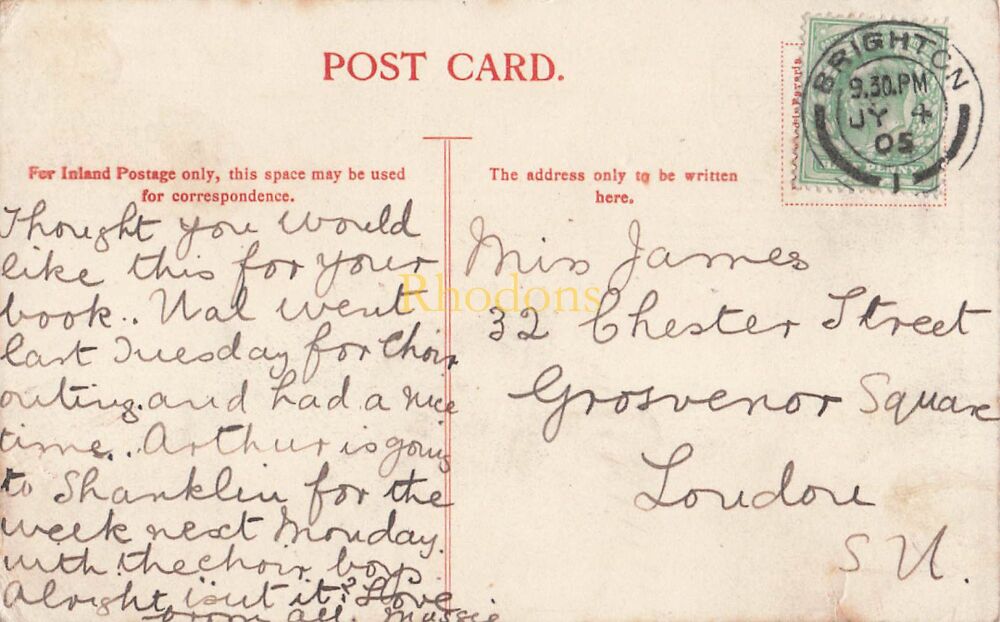 POST CARD.
BRIGHTON
9.30.PM
JY 4
05
1
PENNY
For Inland Postage only, this space may be used
for correspondence.
The address only to be written
here.
Thought you would
like this for your
book.. Wal went
last Tuesday for Choir
outing. and had a nice
time.. Arthur is going
to Shanklin for the
week next Monday.
with the choir boys.
Alright, isn't it? Love
from all.
Miss James
32 Chester Street
Grosvenor Square
London
S W.
Rhodons